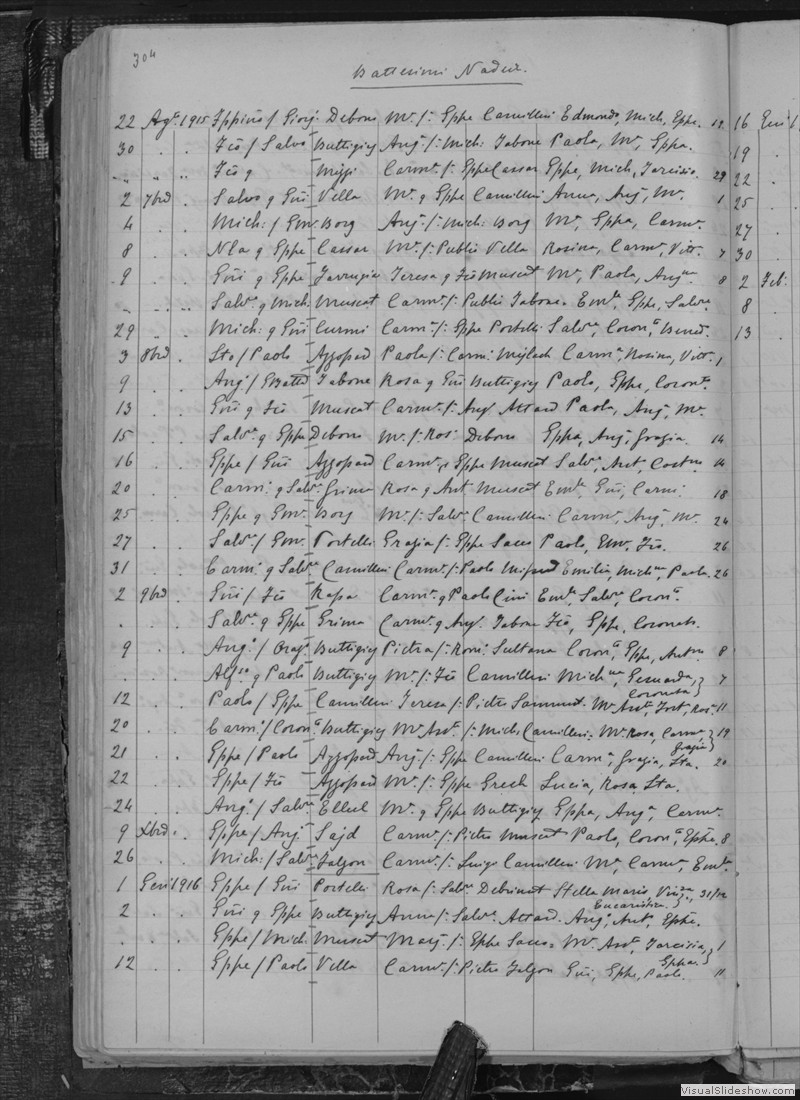 304
Battesimi Nadur.
22 Ag. 1915 Debono Mr /: Eppe Camilleri Edmondo, Mich, Eppe. 19
30 . . Fco / Salvo Buttigieg Ang /: Mich: Tabone Paolo, Mr, Eppa.
„ „ „ Fco q Mizzi Carmr /: Eppe Cassar Eppe, Mich, Tarcisio. 29
2 7bre . Salvo q Gni Vella Mr q Eppe Camilleri Anna, Ang, Mr. 1
4 . . Mich: / Emr Borg Ang /: Mich: Borg Mr, Eppa, Carmr.
8 . . Nla q Eppe Cassar Mr /: Publio Vella Rosina, Carmr, Vitt. 7
9 . . Gni q Eppe Farrugia Teresa q Fco Muscat Mr, Paola, Ang 8
„ „ „ Salvr q Mich: Muscat Carmr /: Publio Tabone. Emr, Eppe, Salvr
29 . . Mich: q Gni Curmi Carmr /: Eppe Portelli Salvr, Coron, Bened.
3 8bre . Sto / Paolo Azzopard Paola /: Carm: Carmr, Rosina, Vitt. 1
9 . . Ang / Batta Tabone Rosa q Gni Buttigieg Paolo, Eppe, Coron.
13 . . Gni q Fco Muscat Carmr /: Ang Attard Paola, Ang, Mr.
15 . . Salvr q Eppe Debono Mr /: Ros: Debono Eppa, Ang, Grazia. 14
16 . . Eppe / Gni Azzopard Carmr q Eppe Muscat Salvr, Ant, 14
20 . . Carm: q Salvr Grima Rosa q Ant Muscat Emr, Gni, Carm: 18
25 . . Eppe q Emr Borg Mr /: Salvr Camilleri Carmr, Ang, Mr. 24
27 . . Salvr / Emr Portelli Grazia /: Eppe Sacco Paolo, Emr, Fco. 26
31 . . Carm: q Salvr Camilleri Carmr /: Paolo Mifsud Emilia, Mich, Paola. 26
2 9bre . Gni / Fco Rapa Carmr q Paolo Cini Emr, Salvr, Coron.
. . . Salvr q Eppe Grima Carmr q Ang Tabone Fco, Eppe, Coronato
9 . . Ang / Oraz Buttigieg Pietra /: Rom: Sultana Coron, Eppe, Ant 8
. . . Alfso q Paolo Buttigieg Mr /: Fco Camilleri Mich, } 7
Coronata
12 . . Paolo / Eppe Camilleri Teresa /: Pietro Sammut. Mr Ass, Fort, Ros. 11
20 . . Carm: / Coron Buttigieg Mr Ass /: Mich: Camilleri. Mr Rosa, Carmr } 19
Grazia
21 . . Eppe / Paolo Azzopard Ang /: Eppe Camilleri Carmr, Grazia, Sta. 20
22 . . Eppe / Fco Azzopard Mr /: Eppe Grech Lucia, Rosa, Sta.
24 . . Ang / Salvr Ellul Mr q Eppe Buttigieg Eppa, Ang, Carmr.
9 Xbre . Eppe / Ang Sajd Carmr /: Pietro Muscat Paolo, Coron, Eppe, 8
26 . . Mich: / Salvr Falzon Carmr /: Luigi Camilleri Mr, Carmr, Emr
1 Gen 1916 Eppe / Gni Portelli Rosa /: Salvr Debrincat Stella Maris, 31/12
Eucaristica
2 . . Gni q Eppe Buttigieg Anna /: Salvr Attard. Ang, Ant, Eppe.
. . . Eppe / Mich: Muscat Marj /: Eppe Sacco. Mr Ass, Tarcisia, } 1
Eppa
12 . . Eppe / Paolo Vella Carmr /: Pietro Falzon Gni, Eppe, Paolo. 11
16 Gen
19 .
22 .
25 .
27 .
30 .
2 Feb:
8 .
13 .
VisualSlideshow.com